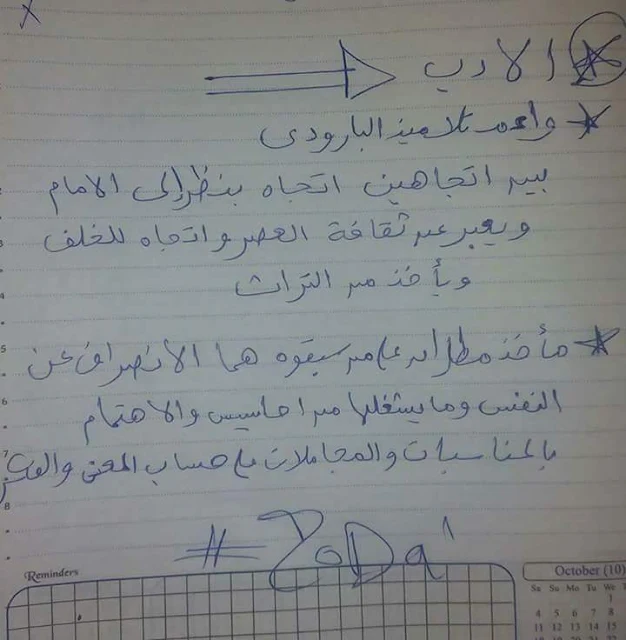 الادب
واءم تلاميذ البارودى
بين اتجاهين اتجاه ينظر إلى الامام
ويعبر عن ثقافة العصر واتجاه للخلف
ويأخذ من التراث
مأخذ مطران على من سبقوه هما الانصراف عن
النفس وما يشغلها من احاسيس والاهتمام
بالمناسبات والمجاملات على حساب المعنى والفكر
# ZoDa
Reminders
October (10)
Sa Su Mo Tu We
1
4 5 6 7 8
11 12 13 14 15